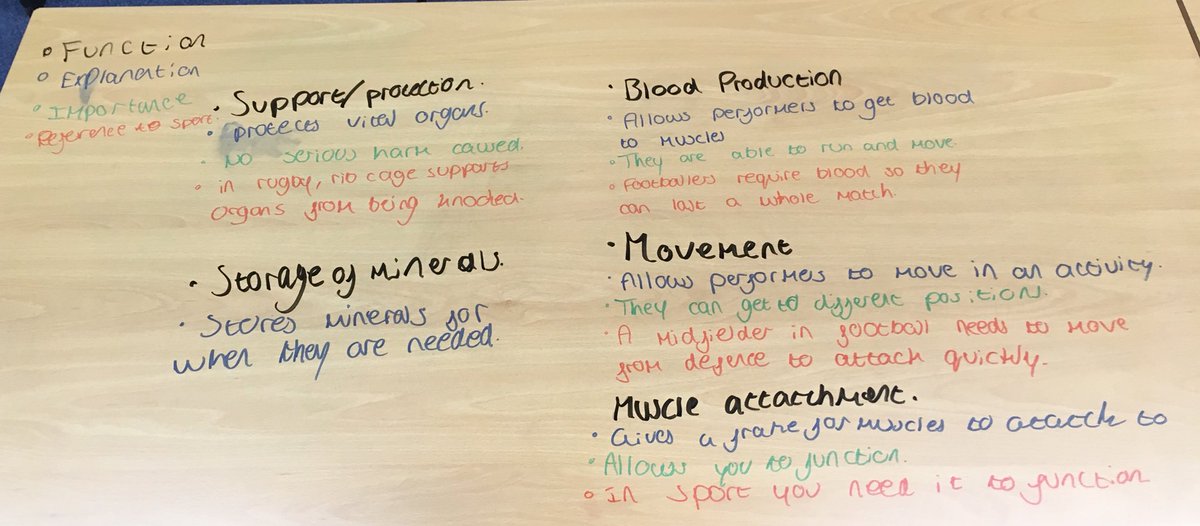 • Function
• Explanation
• Importance
• Reference to sport.
• Support/protection.
• protects vital organs.
• No serious harm caused.
• in rugby, rib cage supports
organs from being knocked.
• Storage of minerals.
• Stores minerals for
when they are needed.
• Blood Production
• Allows performers to get blood
to muscles
• They are able to run and move.
• Footballers require blood so they
can last a whole match.
• Movement
• Allows performers to move in an activity.
• They can get to different positions.
• A midfielder in football needs to move
from defence to attack quickly.
Muscle attatchment.
• Gives a frame for muscles to attatch to
• Allows you to function.
• In sport you need it to function